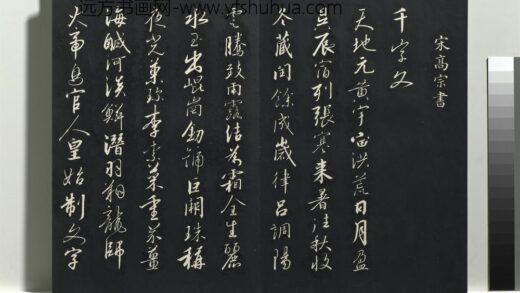 远方书画网 - www.yfshuhua.com
宋高宗書
千字文
天地元黃宇宙洪荒日月盈
昃辰宿列張寒来暑往秋收
冬藏閏餘成歲律呂調陽
雲騰致雨露結為霜金生麗
水玉出崐崗劒號巨闕珠稱
夜光菓珍李柰菜重芥薑
海鹹河淡鱗潛羽翔龍師
火帝鳥官人皇始制文字